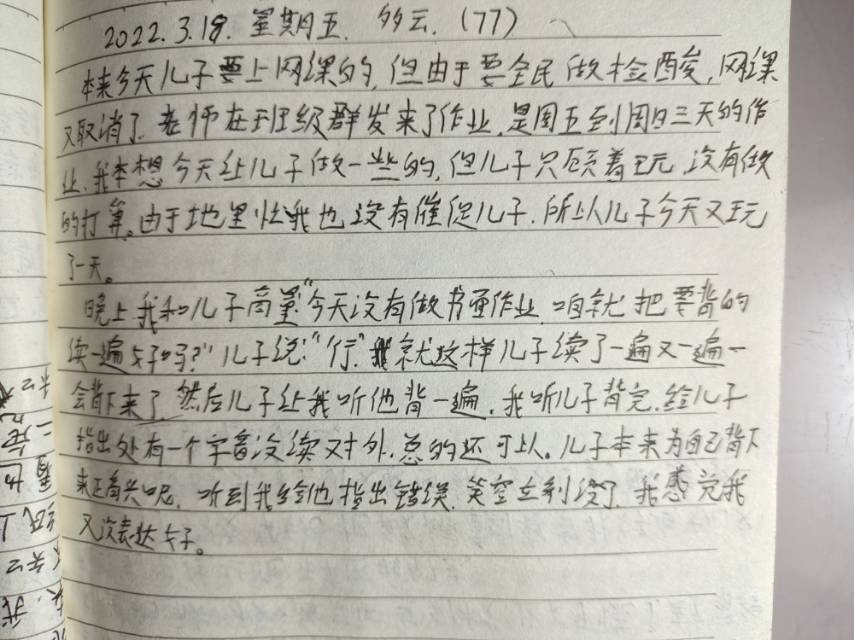 2022.3.18. 星期五. 多云. (77)
本来今天儿子要上网课的, 但由于要全民做检酸, 网课
又取消了. 老师在班级群发来了作业, 是周五到周日三天的作
业. 我本想今天让儿子做一些的, 但儿子只顾着玩, 没有做
的打算。由于地里忙我也没有催促儿子. 所以儿子今天又玩
了一天。
晚上我和儿子商量"今天没有做书面作业, 咱就把要背的
读一遍好吗?"儿子说:"行"就这样儿子读了一遍又一遍一
会背下来了. 然后儿子让我听他背一遍. 我听儿子背完. 给儿子
指出处有一个字音没读对外. 总的还可以。儿子本来为自己背下
来正高兴呢. 听到我给他指出错误. 笑容立刻没了. 我感觉我
又没表达好。